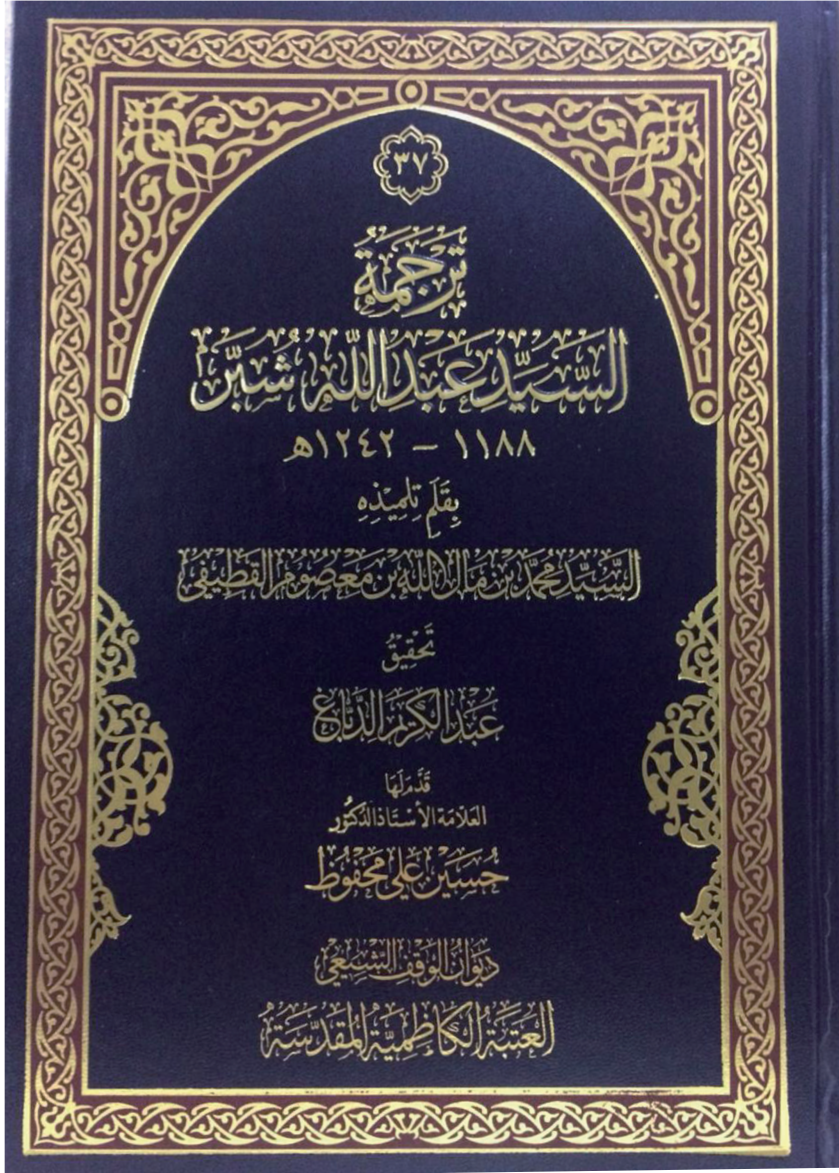 ٣٧
ترجمة
السَّيِّد عَبد الله شُبَّر
١١٨٨ – ١٢٤٢هـ
بِقَلَمِ تِلمِيذِهِ
السَّيِّد مُحمَّد بن مَال الله بن مَعصُوم القَطِيفي
تَحقِيقُ
عَبد الكَريم الدَّبَّاغ
قَدَّمَ لَهَا
العَلاّمَة الأُسْتَاذ الدكتُور
حُسَين عَلي مَحفُوظ
ديوَان الوَقف الشِيعِي
العَتبَة الكَاظِميَّة المُقدَّسَة